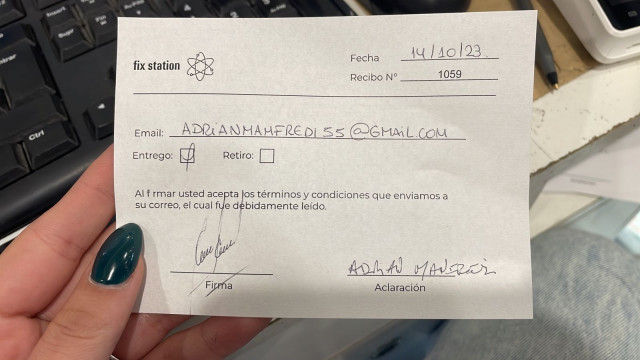 fix station
Fecha 14/10/23.
Recibo Nº 1059
Email: ADRIANMAMFREDI55@GMAIL.COM
Entrego: Retiro:
Al f rmar usted acepta los términos y condiciones que enviamos a
su correo, el cual fue debidamente leído.
ADRIAN
Firma Aclaración
Ctrl